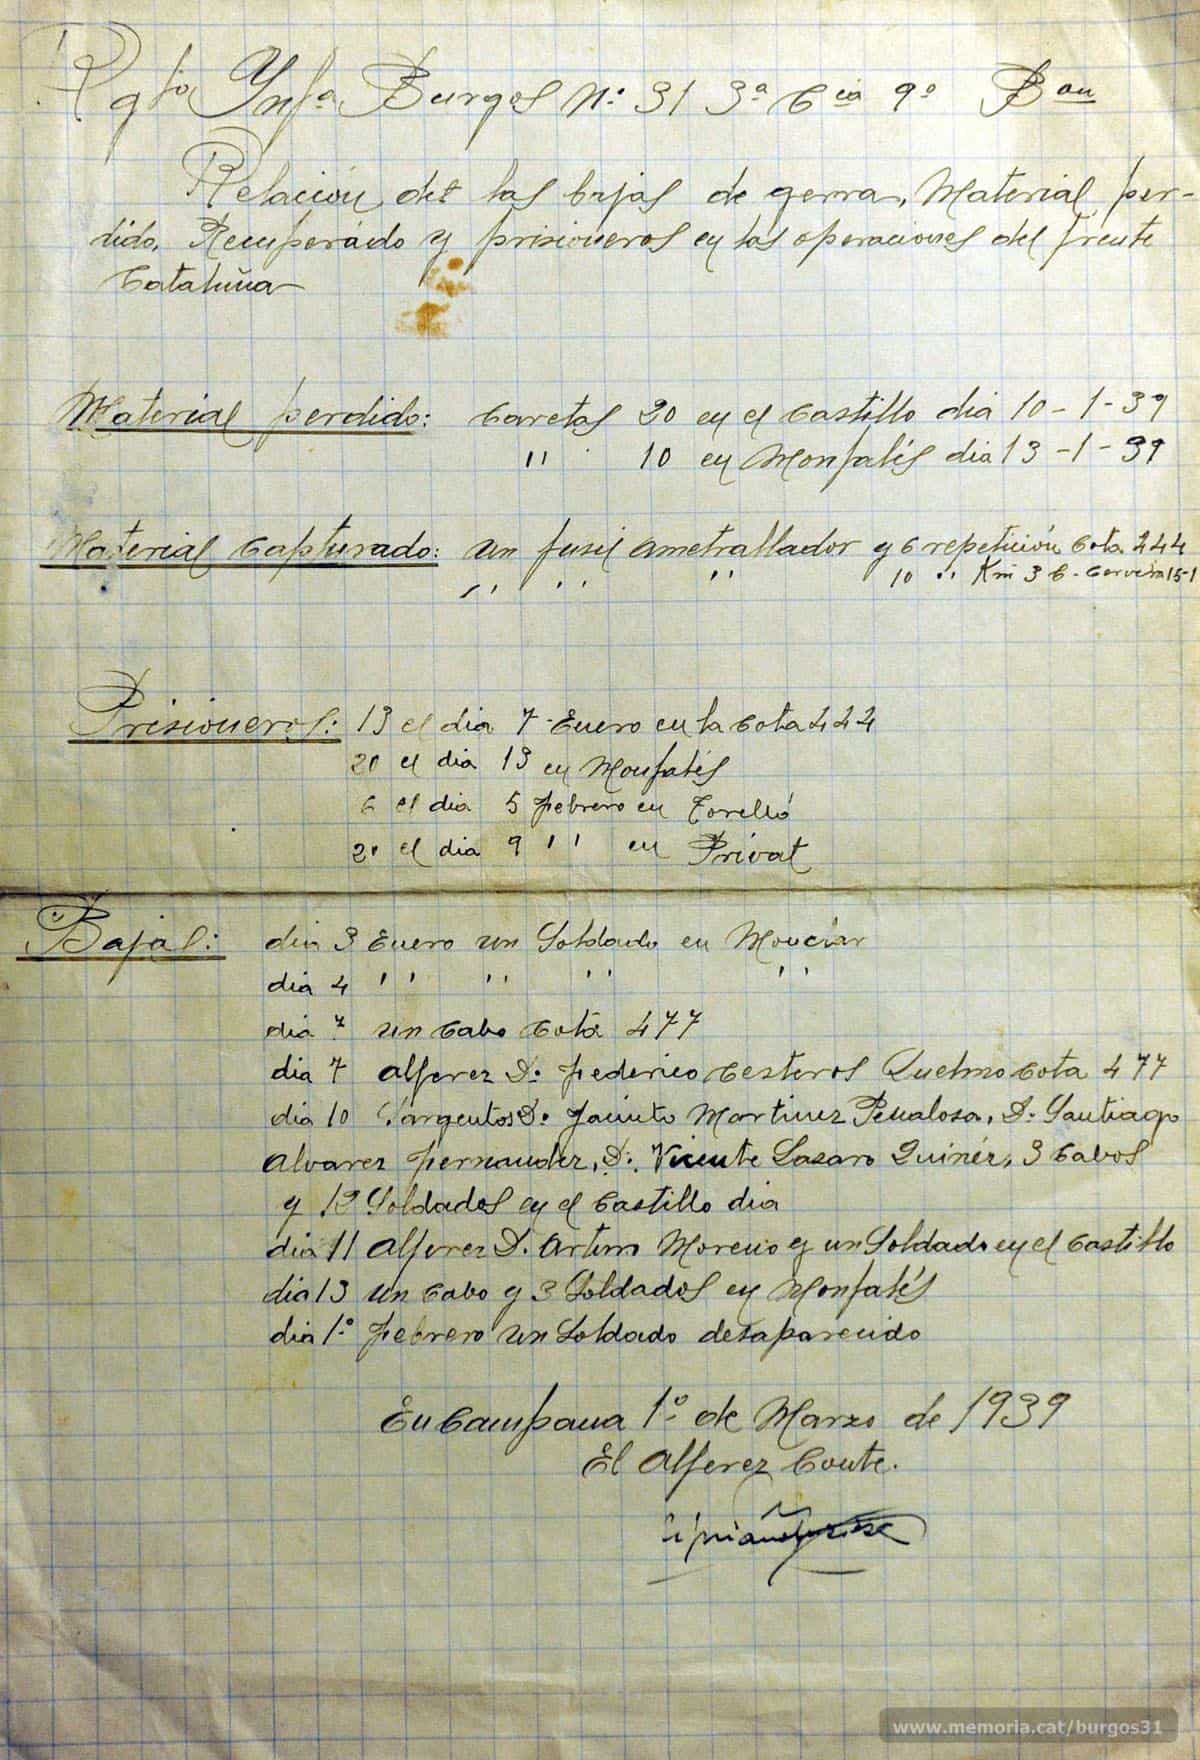 Rgto Ynfa Burgos Nº 31 3ª Cia 9º Bon
Relación det las bajas de gerra, Material per-
dido, Recuperado y prisioneros en las operaciones del frente
Cataluña
Material perdido: Caretas 20 en el Castillo dia 10-1-39
" 10 en Monfalés dia 13-1-39
Material Capturado: un fusil ametrallador y 6 repetición Cota 444
" " " 10 " Km 3 C. Cervera 15-1
Prisioneros: 13 el dia 7 Enero en la Cota 444
20 el dia 13 en Monfalés
6 el dia 5 febrero en Torelló
20 el dia 9 " en Privat
Bajas: dia 3 Enero un Soldado en Monclar
dia 4 " " " "
dia 7 un Cabo Cota 477
dia 7 alferez D. federico Cesteros Cota 477
dia 10 Sargentos D. Jacinto Martinez Penalosa, D. Santiago
Alvarez fernandez, D. Vicente Lazaro 3 Cabos
y 12 Soldados en el Castillo dia
dia 11 alferez D. Arturo Moreno y un Soldado en el Castillo
dia 13 un Cabo y 3 Soldados en Monfalés
dia 1º febrero un Soldado desaparecido
En Campana 1º de Marzo de 1939
El Alferez Comte.
www.memoria.cat/burgos31